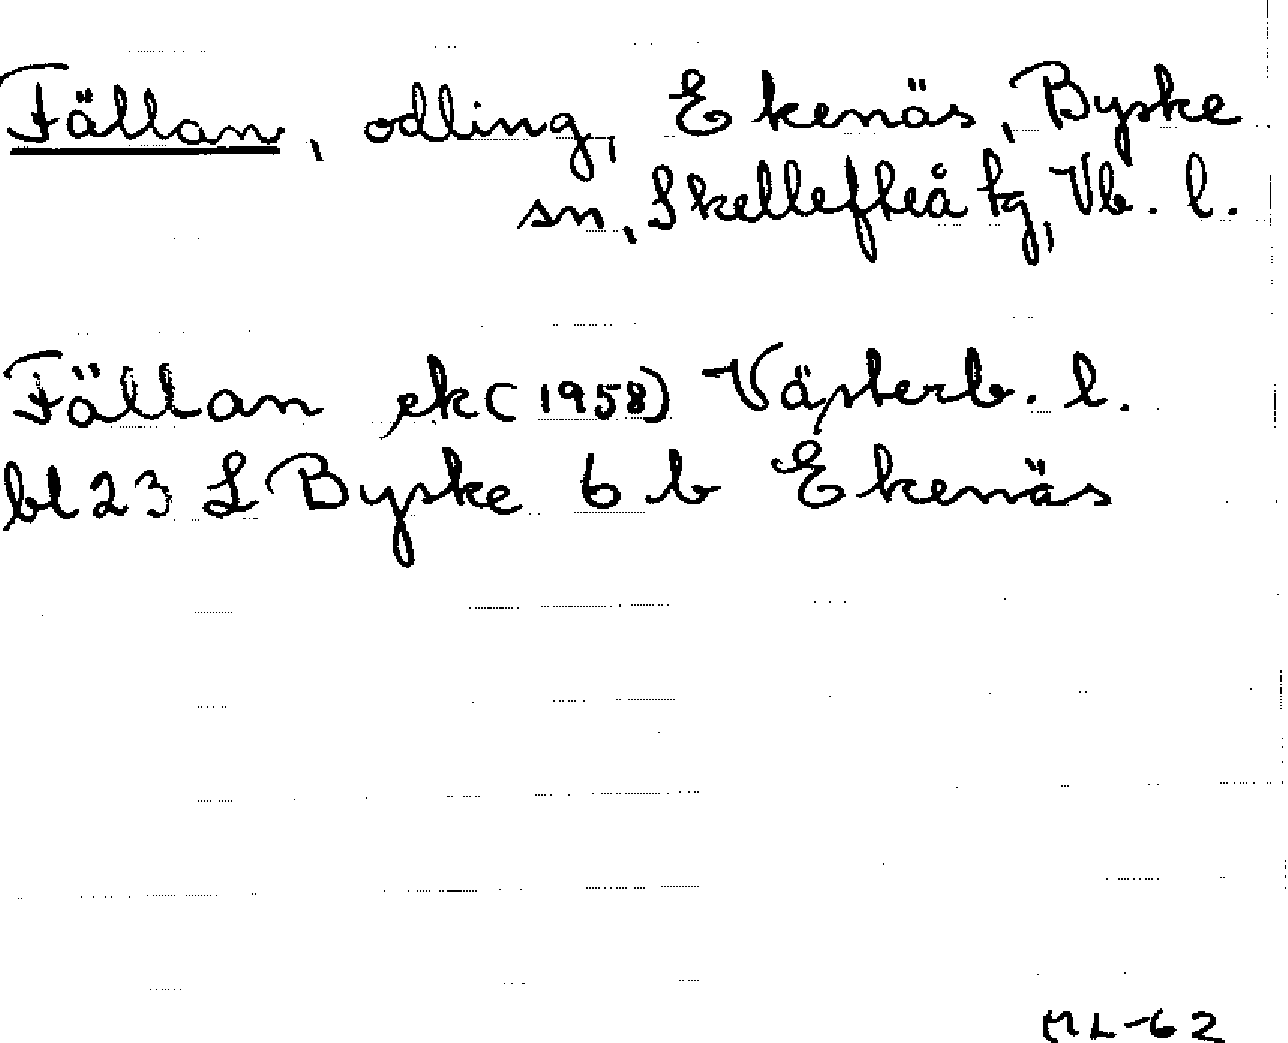 Fällan, odling, Ekenäs, Byske
sn, Skellefteå tg, Vb. l.
Fällan ek (1958) Västerb. l.
bl 23 L Byske 6 b Ekenäs
ML-62